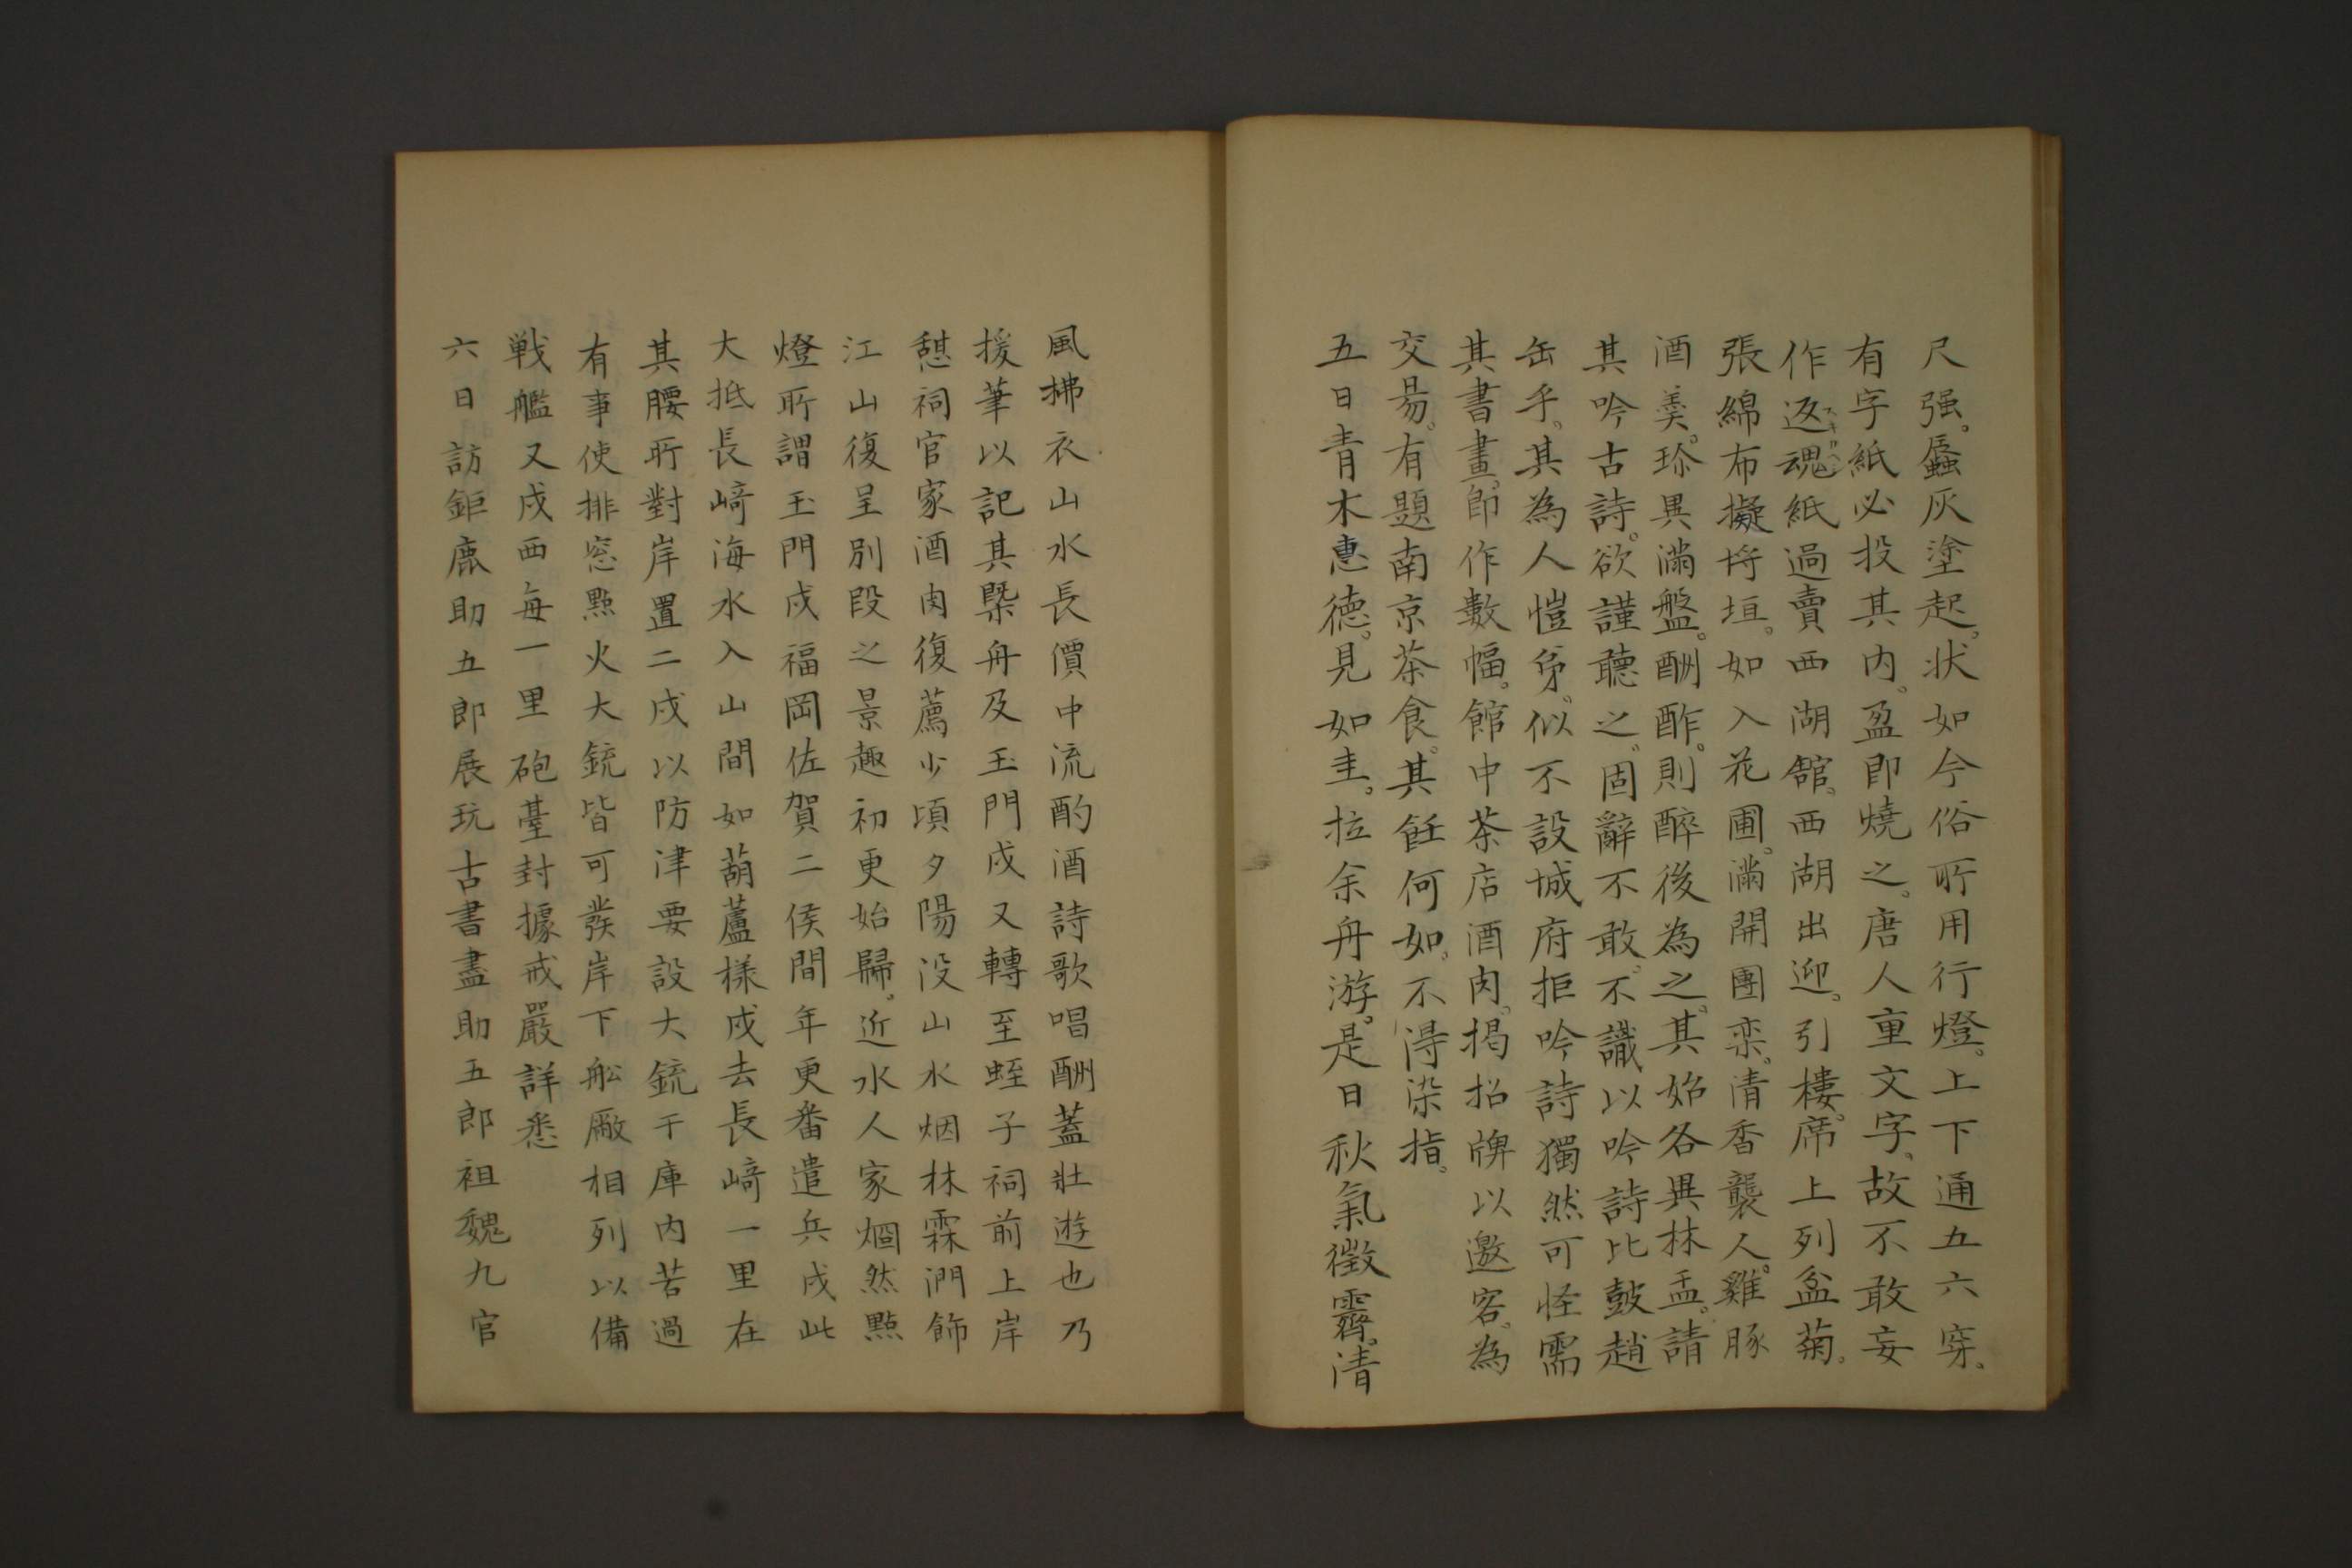 尺强。蜃灰塗起。状如今俗所用行燈。上下通五六穿。
有字紙必投其内。盈即燒之。唐人重文字。故不敢妄
作返魂紙過賣西湖舘。西湖出迎。引樓。席上列盆菊。
スキカヘシ
張綿布擬将垣。如入花圃。滿開團栾。清香襲人。雞豚
酒羹。珎異滿盤。酬酢。則醉後為之。其始各異林盂。請
其吟古詩。欲謹聽之。固辭不敢。不識以吟詩比鼓趙
缶乎。其為人愷弟。似不設城府拒吟詩獨然可怪需
其書畫。即作數幅。館中茶店酒肉。揭招牌以邀客。為
交易。有題南京茶食。其飪何如。不得染指。
五日青木惠德。見如圭。拉余舟游。是日秋氣徵霽。清
風拂衣山水長價中流酌酒詩歌唱酬蓋壯遊也乃
援筆以記其槩舟及玉門戍又轉至蛭子祠前上岸
憇祠官家酒肉復薦少頃夕陽没山水烟林霖澗飾
江山復呈別段之景趣初更始歸。近水人家烟然點
燈所謂玉門戍福岡佐賀二侯間年更番遣兵戍此
大抵長﨑海水入山間如葫蘆樣戍去長﨑一里在
其腰所對岸置二戍以防津要設大銃于庫内若過
有事使排窓點火大銃皆可發岸下舩廠相列以備
戦艦又戍西每一里砲臺封據戒嚴詳悉
六日訪鉅鹿助五郎展玩古書畫助五郎祖魏九官